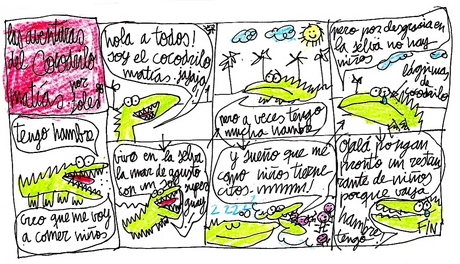 las aventuras
del Cocodrilo
matías. por
Joles
hola a todos!
soy el cocodrilo
matías. jajaja!
pero a veces tengo
mucha hambre
pero por desgracia en
la selva no hay
niños
lágrimas de
cocodrilo
tengo hambre
creo que me voy
a comer niños
vivo en la selva
la mar de agusto
con un sol super
guay
y sueño que me
como niños tierne
citos - mmmm!
zzzzz
Ojalá pongan
pronto un restau
rante de niños
porque vaya
hambre
tengo!
FIN